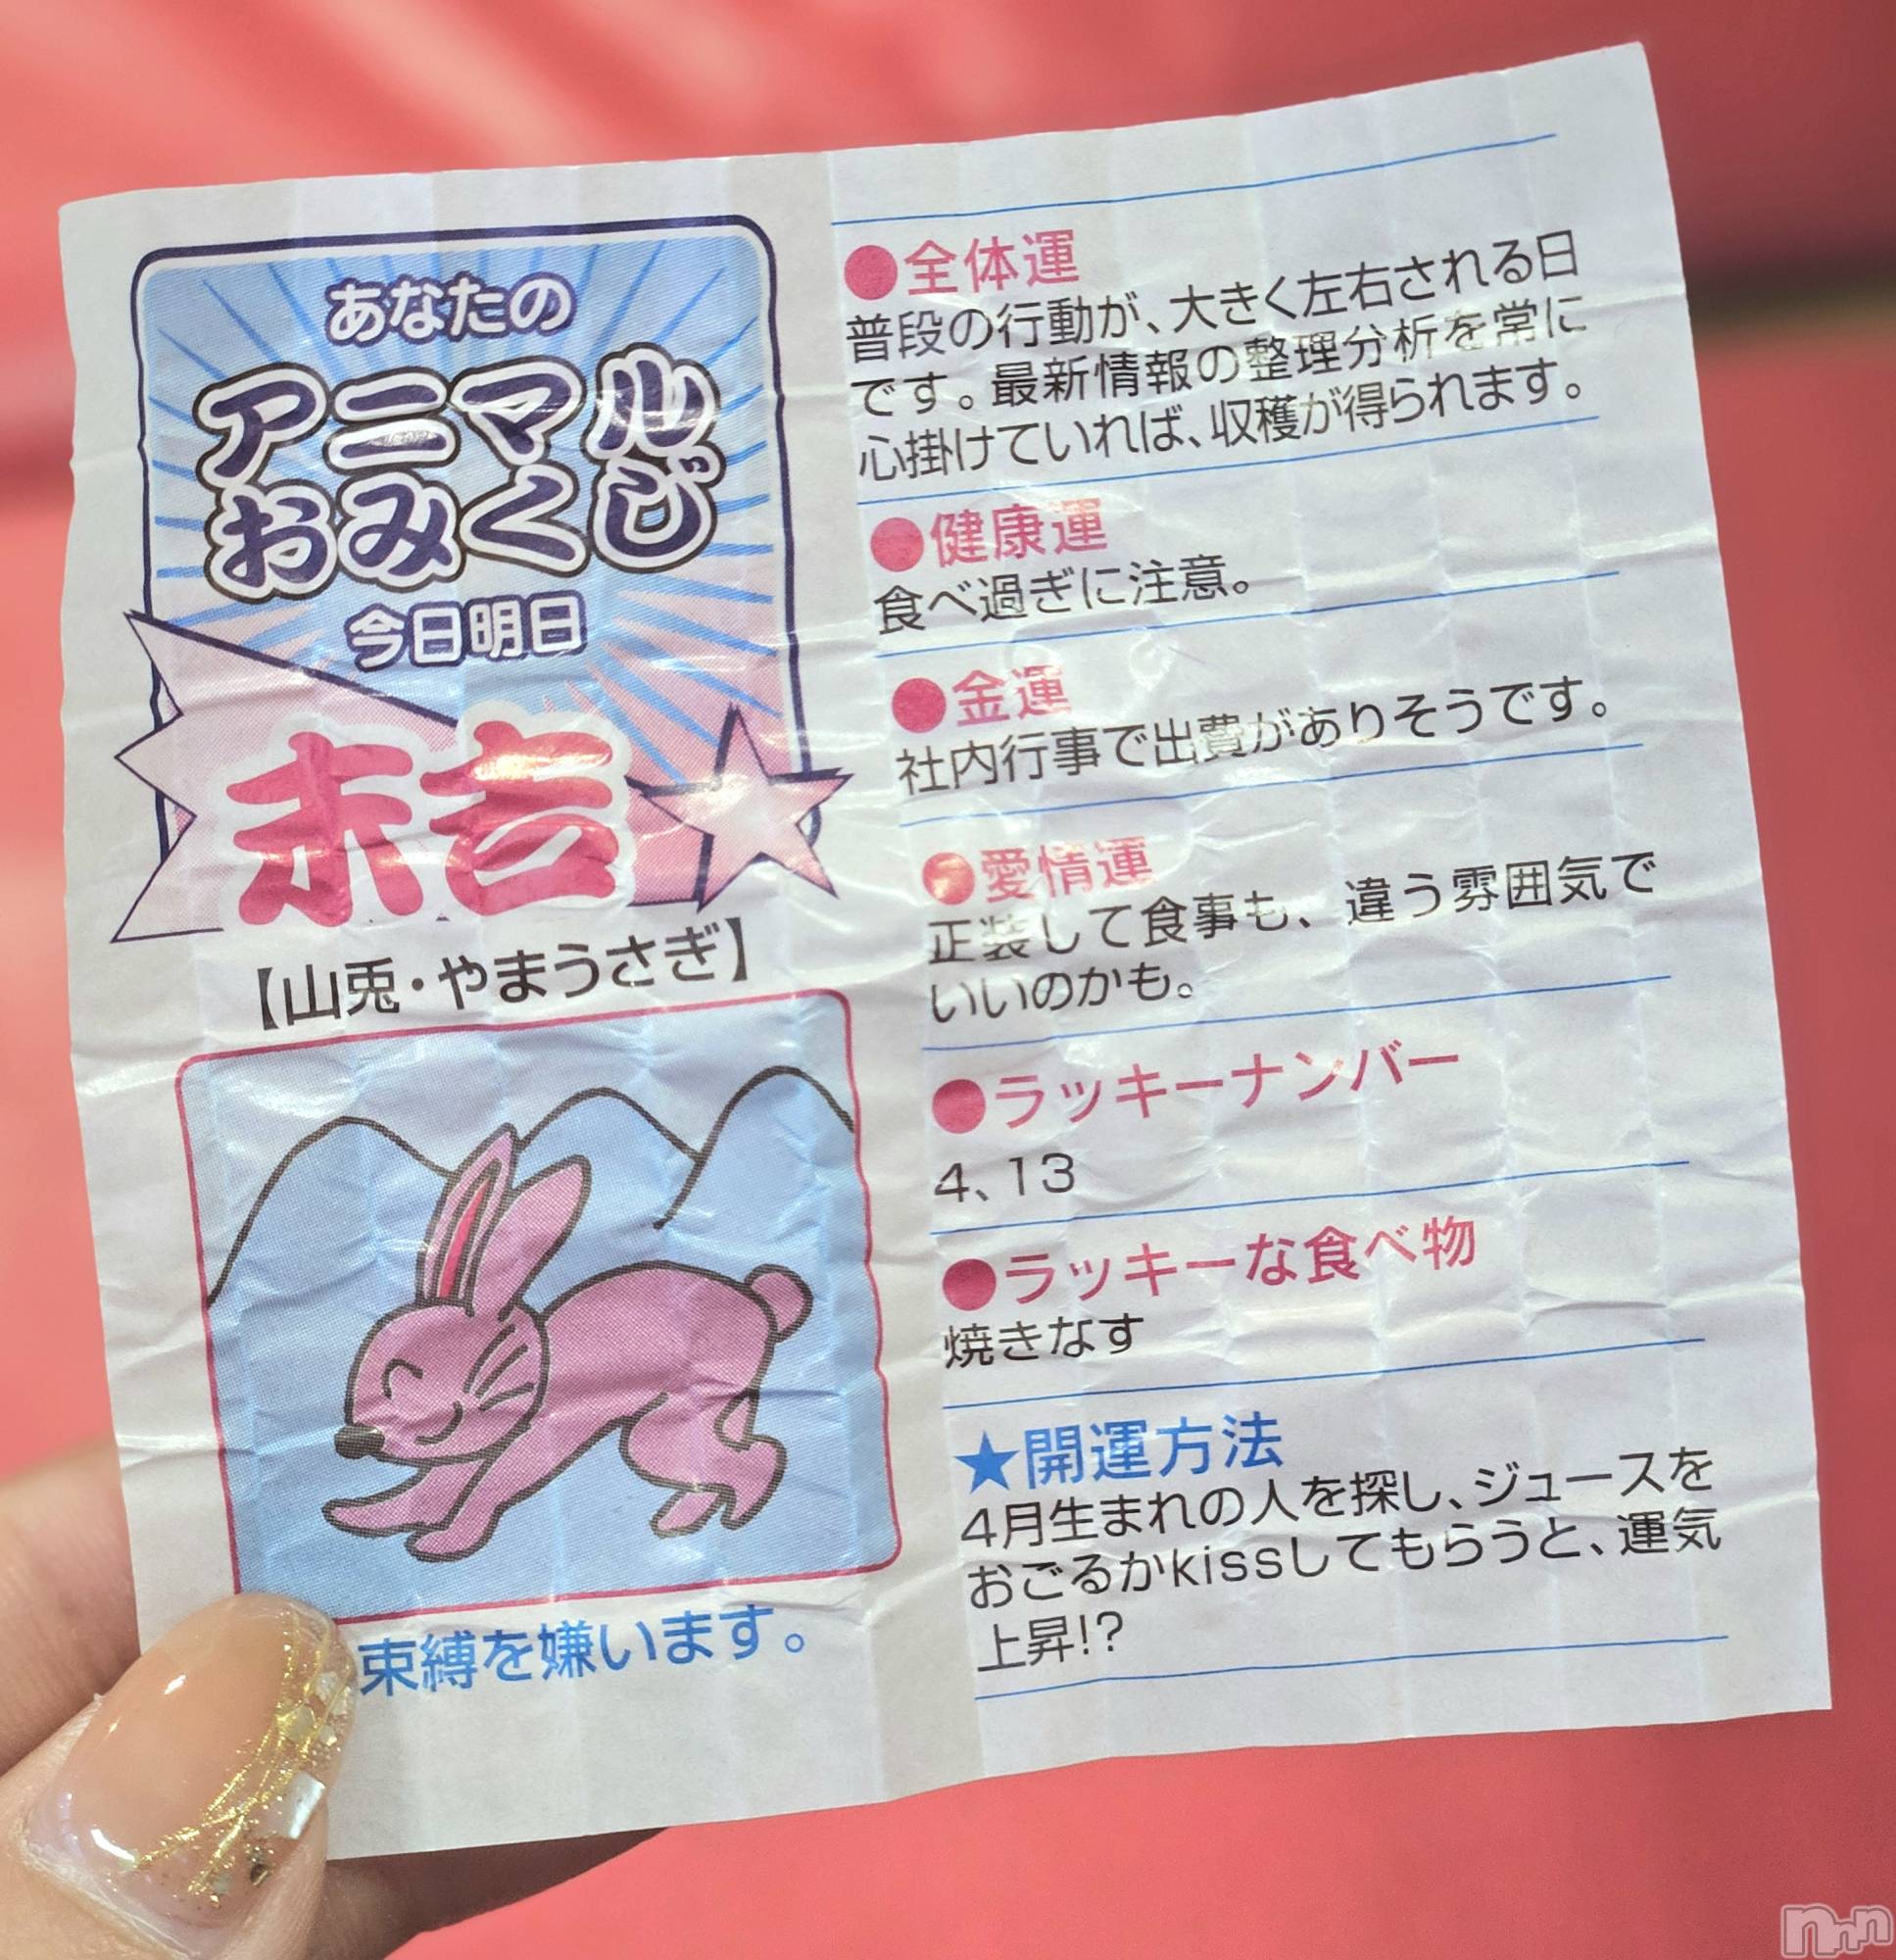 あなたの
アニマル
おみくじ
今日明日
末吉
【山兎・やまうさぎ】
束縛を嫌います。
●全体運
普段の行動が、大きく左右される日
です。最新情報の整理分析を常に
心掛けていれば、収穫が得られます。
●健康運
食べ過ぎに注意。
●金運
社内行事で出費がありそうです。
●愛情運
正装して食事も、違う雰囲気で
いいのかも。
●ラッキーナンバー
4、13
●ラッキーな食べ物
焼きなす
★開運方法
4月生まれの人を探し、ジュースを
おごるかkissしてもらうと、運気
上昇!?